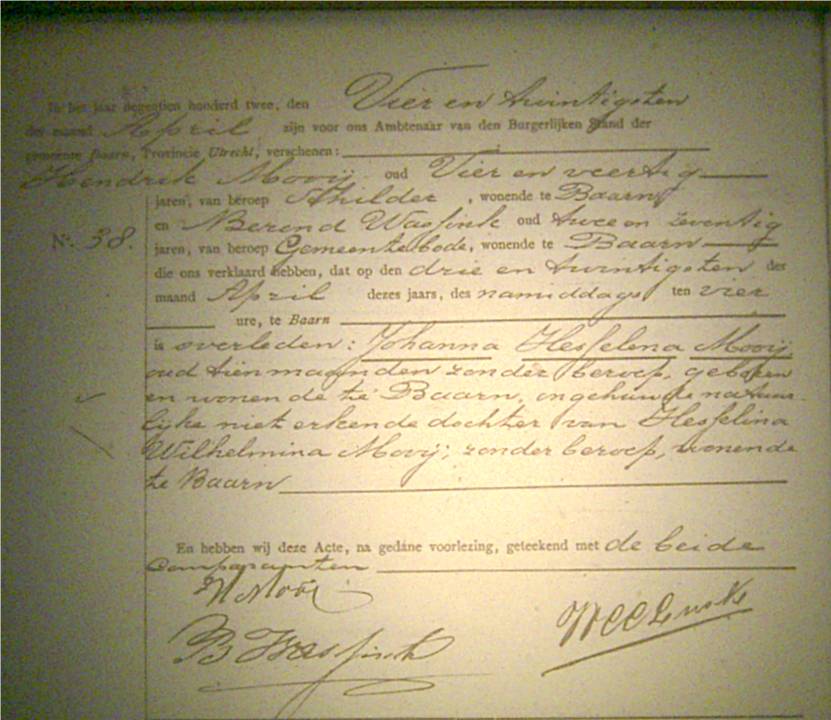 In het jaar negentien honderd twee, den Vier en twintigsten
der maand April zijn voor ons Ambtenaar van den Burgerlijken Stand der
gemeente Baarn, Provincie Utrecht, verschenen:
Hendrik Mooij oud Vier en veertig
jaren, van beroep Schilder, wonende te Baarn
en Berend Wassink oud twee en zeventig
No. 38.
jaren, van beroep Gemeentebode, wonende te Baarn
die ons verklaard hebben, dat op den drie en twintigsten der
maand April dezes jaars, des namiddags ten vier
ure, te Baarn
is overleden: Johanna Hesselena Mooij
oud tien maanden zonder beroep, geboren
en wonende te Baarn, ongehuwde natuur-
lijke niet erkende dochter van Hesselina
Wilhelmina Mooij; zonder beroep, wonende
te Baarn
En hebben wij deze Acte, na gedane voorlezing, geteekend met de beide
Comparanten
H Mooij
B Wassink